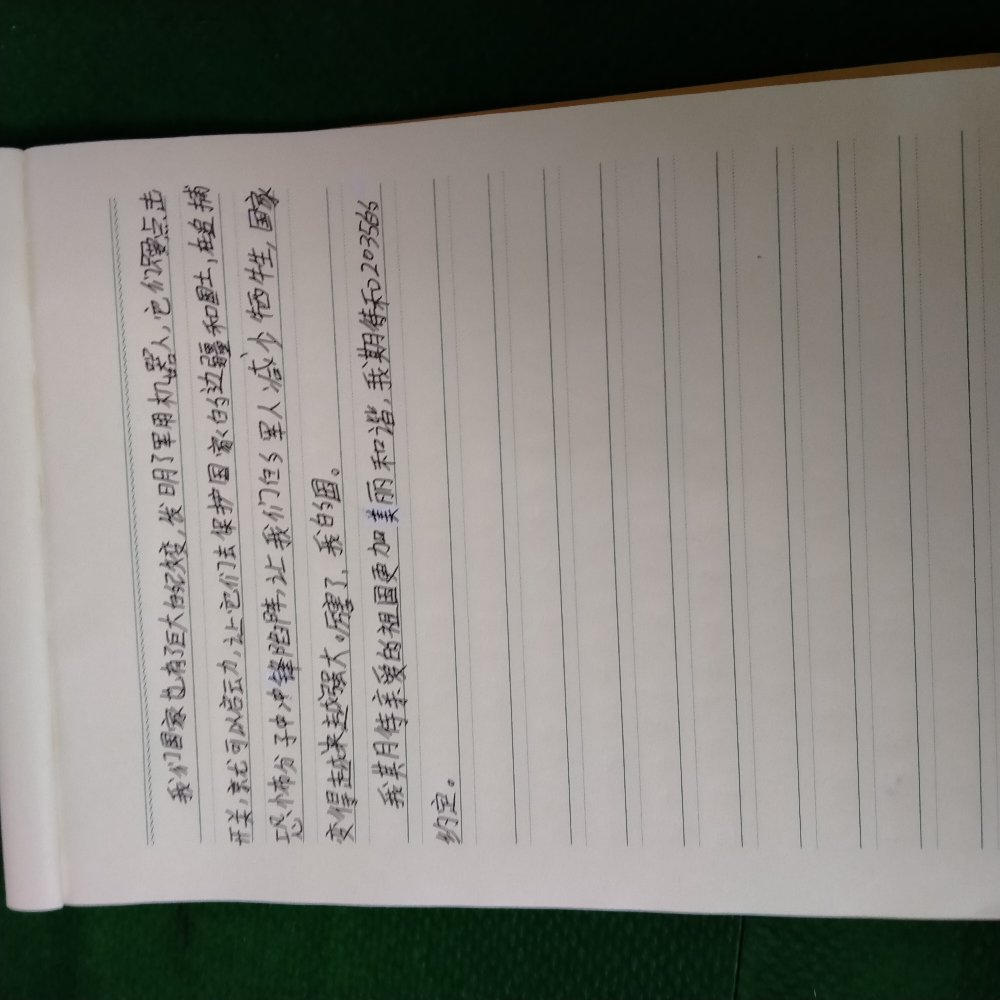 我们国家也有了巨大的改变,发明了军用机器人,它们只要点击
开关,就可以启动,让它们去保护国家的边疆和国土,在追捕
恐怖分子中冲锋陷阵,让我们的军人减少牺牲,国家
变得越来越强大。厉害了,我的国。
我期待亲爱的祖国更加美丽和谐,我期待和2035的
约定。